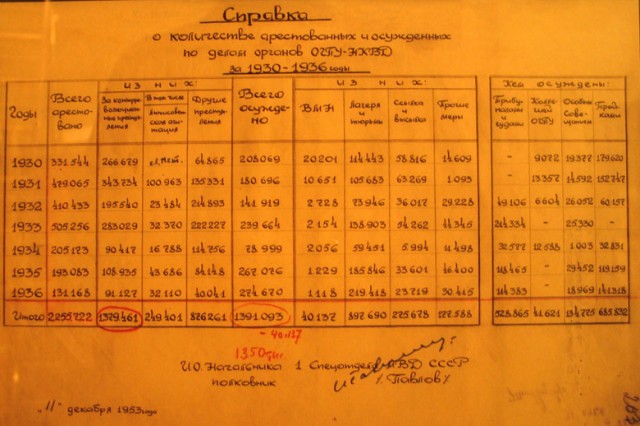 Справка
о количестве арестованных и осужденных
по делам органов ОГПУ-НКВД
за 1930-1936 годы
Годы Всего арестовано из них: Всего осуждено из них: Кем осуждены:
За контрреволюционные преступления В том числе антисоветская агитация Другие преступления ВМН Лагеря и тюрьмы Ссылка и высылка Прочие меры Трибуналами и судами Коллегией ОГПУ Особым совещанием Тройками
1930 331544 266679 св. нет. 64865 208069 20201 114443 58816 14609 - 9072 19377 179620
1931 479065 343734 100963 135331 180696 10651 105683 63269 1.093 - 13357 14592 152747
1932 410433 195540 23484 214893 141919 2728 73946 36017 29.228 49106 6604 26052 60157
1933 505256 283029 32370 222227 239664 2154 138903 54262 44345 214334 - 25330 -
1934 205173 90417 16.788 114756 78999 2056 59451 5994 11498 32577 12588 1003 32831
1935 193083 108935 43686 84148 267076 1229 185846 33601 46400 118465 - 29452 119159
1936 131168 91127 32.110 40041 274670 1118 219418 23719 30415 114383 - 18969 141318
Итого 2255722 1379461 249401 876261 1391093 40137 897690 275678 177588 528865 41621 134775 685832
- 40.137
1350
И.О. Начальника 1 Спецотдела МВД СССР
полковник /Павлов/
"11" декабря 1953 года